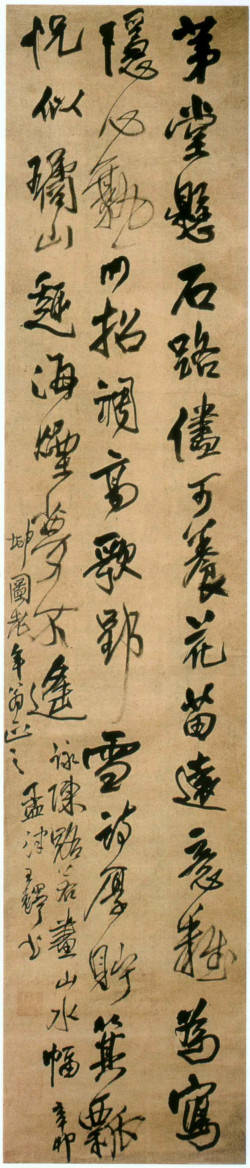 茅堂懸石路儘可養花苗遠意難為寫
隱心勤招調高歌郢雪詩厚貯箕瓢
怳似璚山趣海煙夢不遙
詠陳路若畫山水幅辛卯
坶圖老年翁正之孟津王鐸書